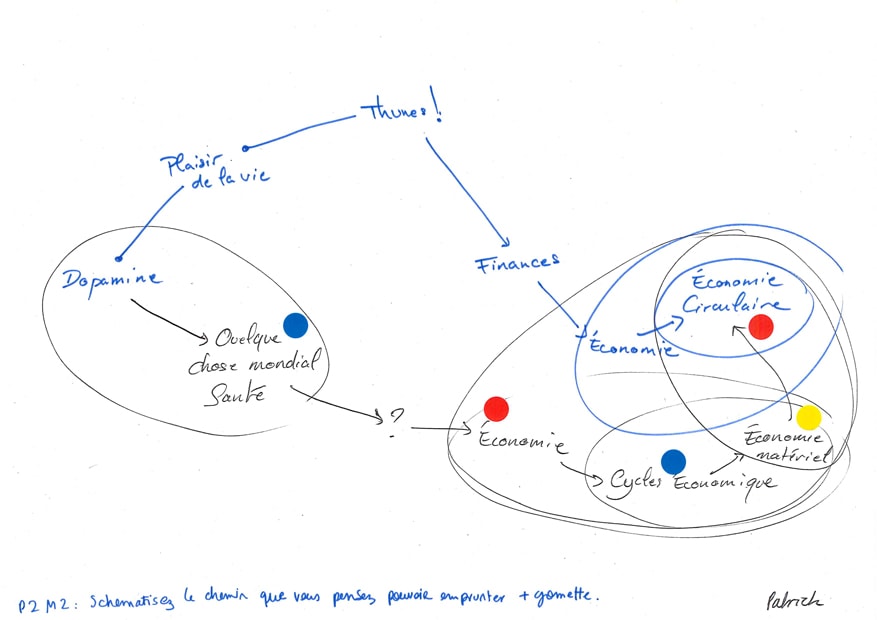 Thunes!
Plaisir
de la vie
Dopamine
Quelque
chose mondial
Santé
?
Finances
Économie
Économie
Circulaire
Économie
Cycles Économique
Économie
matériel
P2 M2 : Schématisez le chemin que vous pensez pouvoir emprunter + gomette.
Patrick